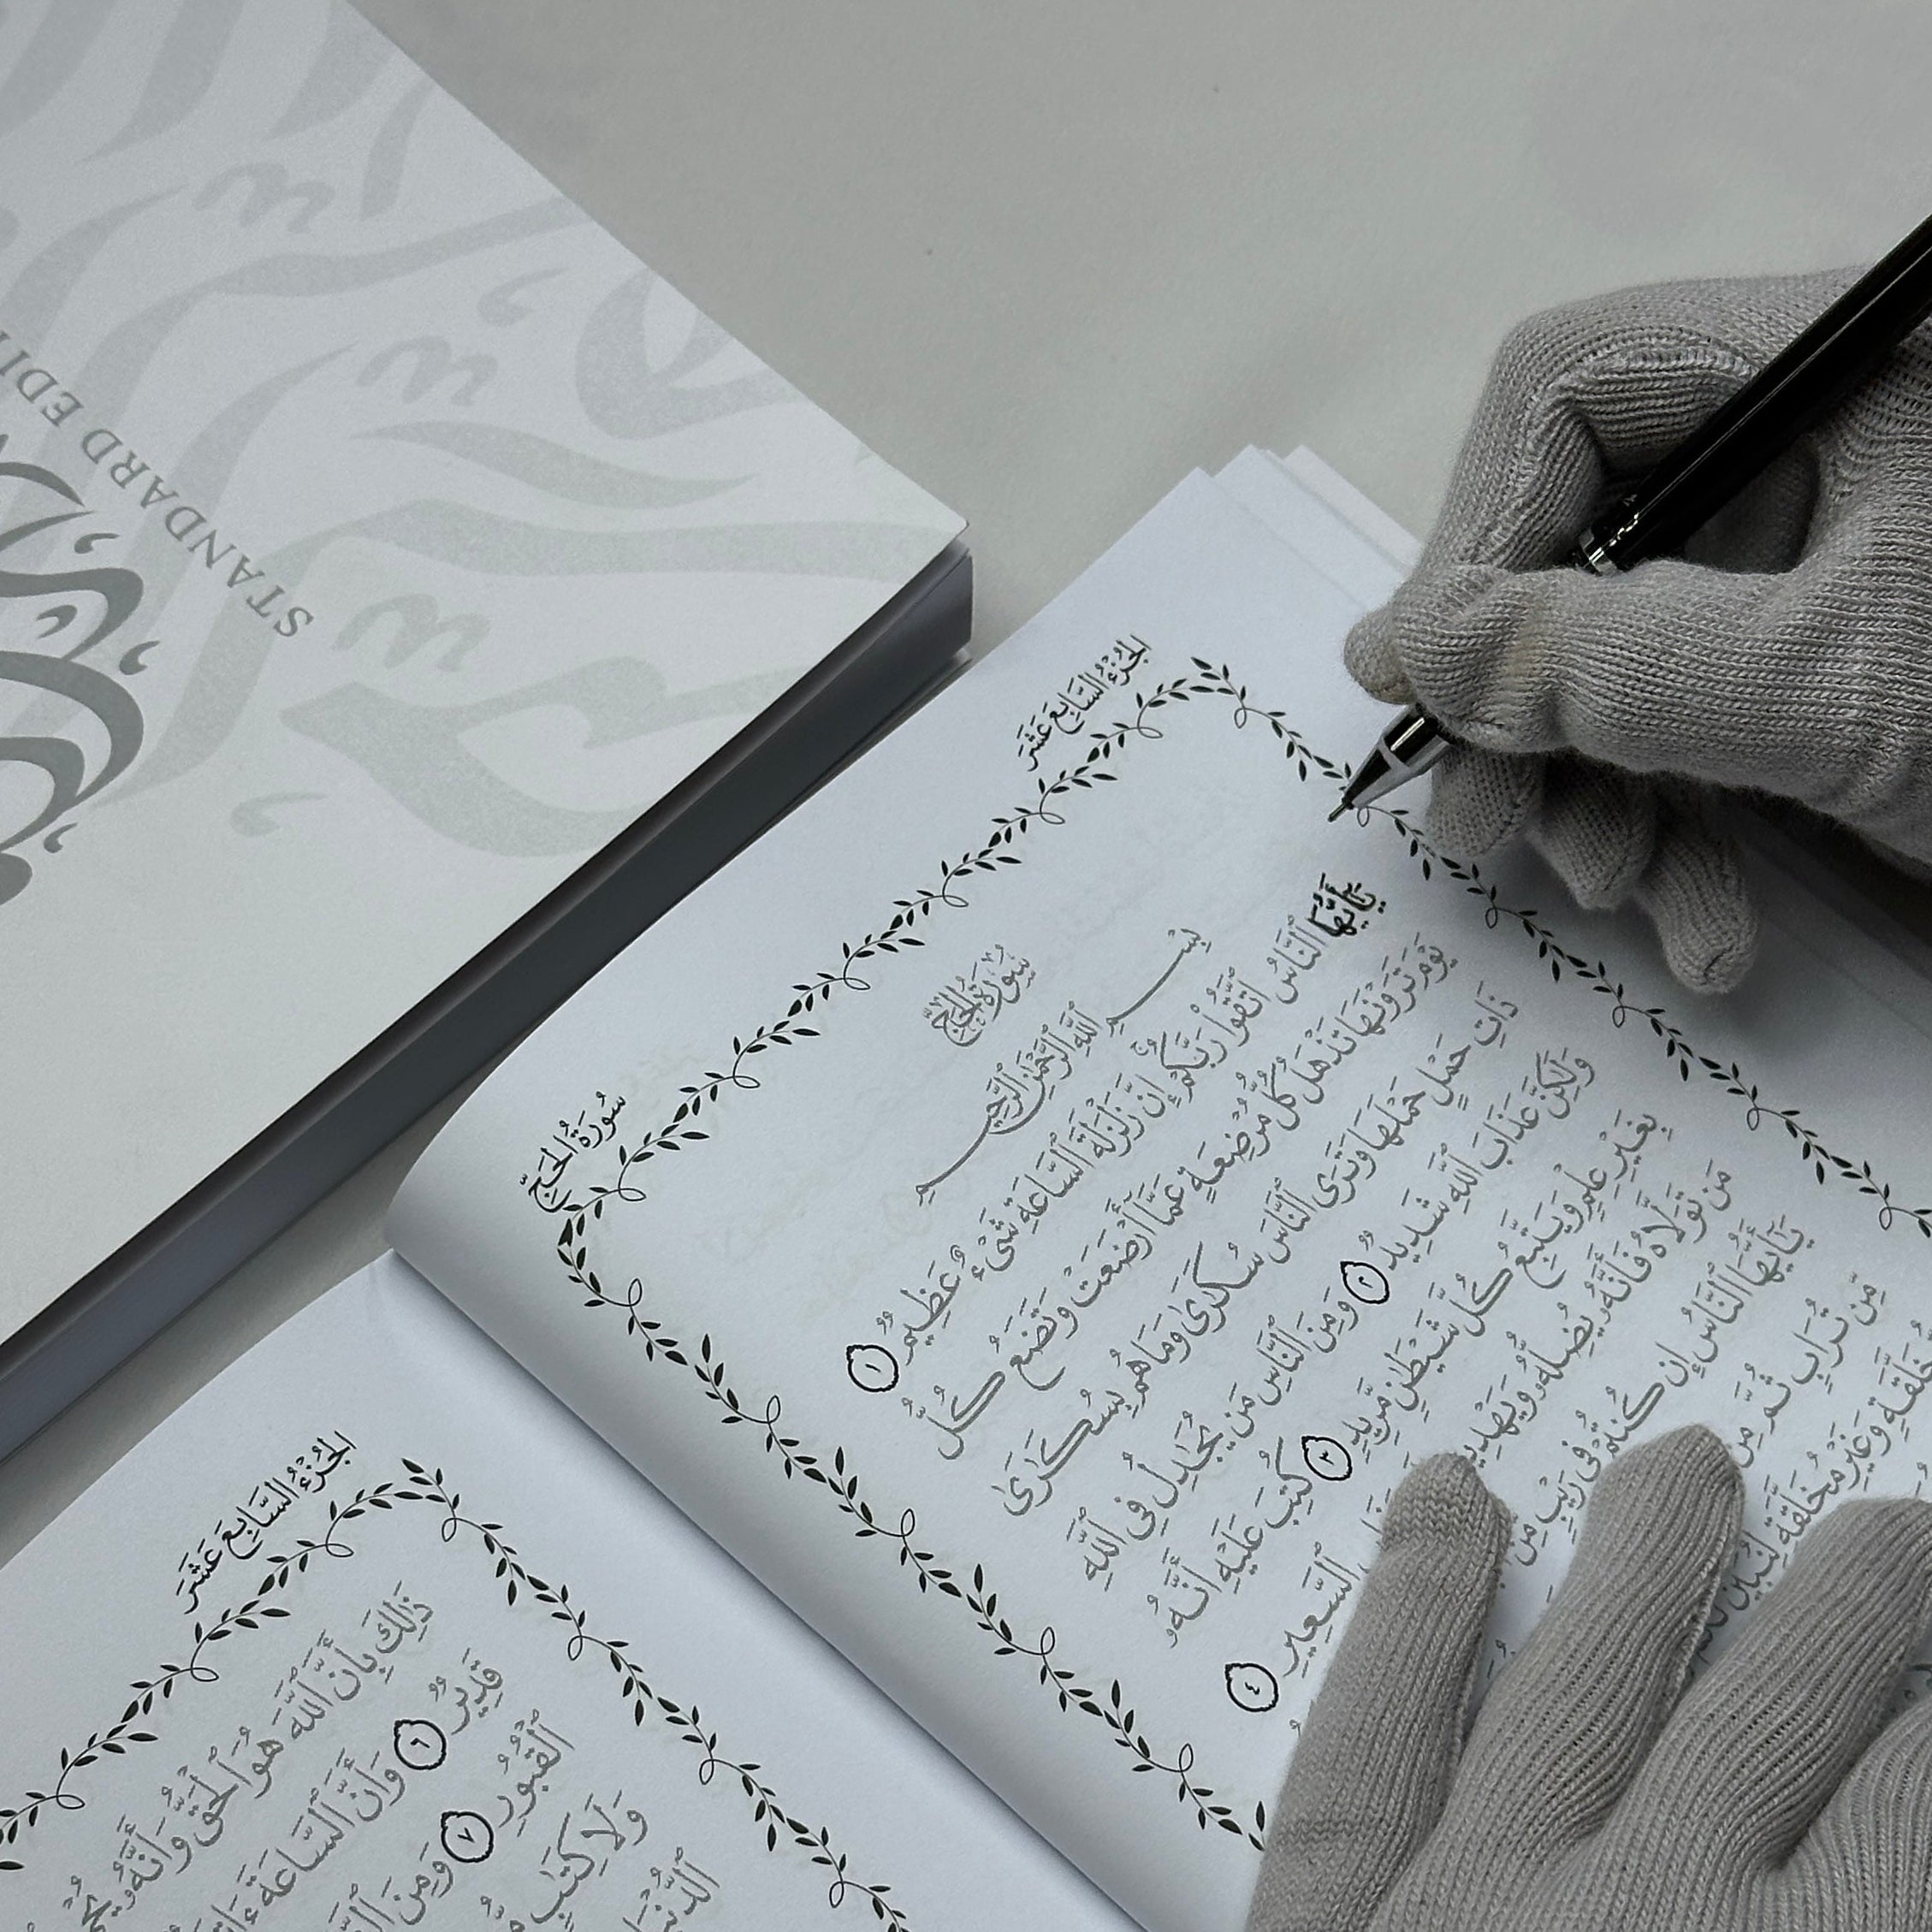 STANDARD EDI
الجُزْءُ السَّابِعَ عَشَرَ
سُورَةُ الحَجِّ
سُورَةُ الحَجِّ
بِسْمِ ٱللَّهِ ٱلرَّحْمَٰنِ ٱلرَّحِيمِ
يَٰٓأَيُّهَا ٱلنَّاسُ ٱتَّقُوا۟ رَبَّكُمْ ۚ إِنَّ زَلْزَلَةَ ٱلسَّاعَةِ شَىْءٌ عَظِيمٌ ١
يَوْمَ تَرَوْنَهَا تَذْهَلُ كُلُّ مُرْضِعَةٍ عَمَّآ أَرْضَعَتْ وَتَضَعُ كُلُّ
ذَاتِ حَمْلٍ حَمْلَهَا وَتَرَى ٱلنَّاسَ سُكَٰرَىٰ وَمَا هُم بِسُكَٰرَىٰ
وَلَٰكِنَّ عَذَابَ ٱللَّهِ شَدِيدٌ ٢ وَمِنَ ٱلنَّاسِ مَن يُجَٰدِلُ فِى ٱللَّهِ
بِغَيْرِ عِلْمٍ وَيَتَّبِعُ كُلَّ شَيْطَٰنٍ مَّرِيدٍ ٣ كُتِبَ عَلَيْهِ أَنَّهُۥ
مَن تَوَلَّاهُ فَأَنَّهُۥ يُضِلُّهُۥ وَيَهْدِيهِ ٱلسَّعِيرِ ٤
يَٰٓأَيُّهَا ٱلنَّاسُ إِن كُنتُمْ فِى رَيْبٍ مِّنَ
مِّن تُرَابٍ ثُمَّ مِن
مُّخَلَّقَةٍ وَغَيْرِ مُخَلَّقَةٍ لِّنُبَيِّنَ
الجُزْءُ السَّابِعَ عَشَرَ
ذَٰلِكَ بِأَنَّ ٱللَّهَ هُوَ ٱلْحَقُّ وَأَنَّهُۥ
قَدِيرٌ ٦ وَأَنَّ ٱلسَّاعَةَ
ٱلْقُبُورِ ٧ وَمِنَ
وَلَا كِتَٰبٍ
ٱلدُّنْيَا